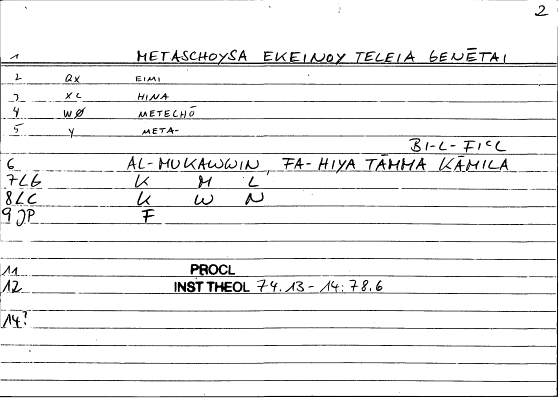 2
1 METASCHOYSA EKEINOY TELEIA GENĒTAI
2 QX EIMI
3 XL HINA
4 WØ METECHŌ
5 Y META-
BI-L-FICL
6 AL-MUKAWWIN, FA-HIYA TĀMMA KĀMILA
7LG K M L
8LC K W N
9JP F
11 PROCL
12 INST THEOL 74.13-14: 78.6
14?